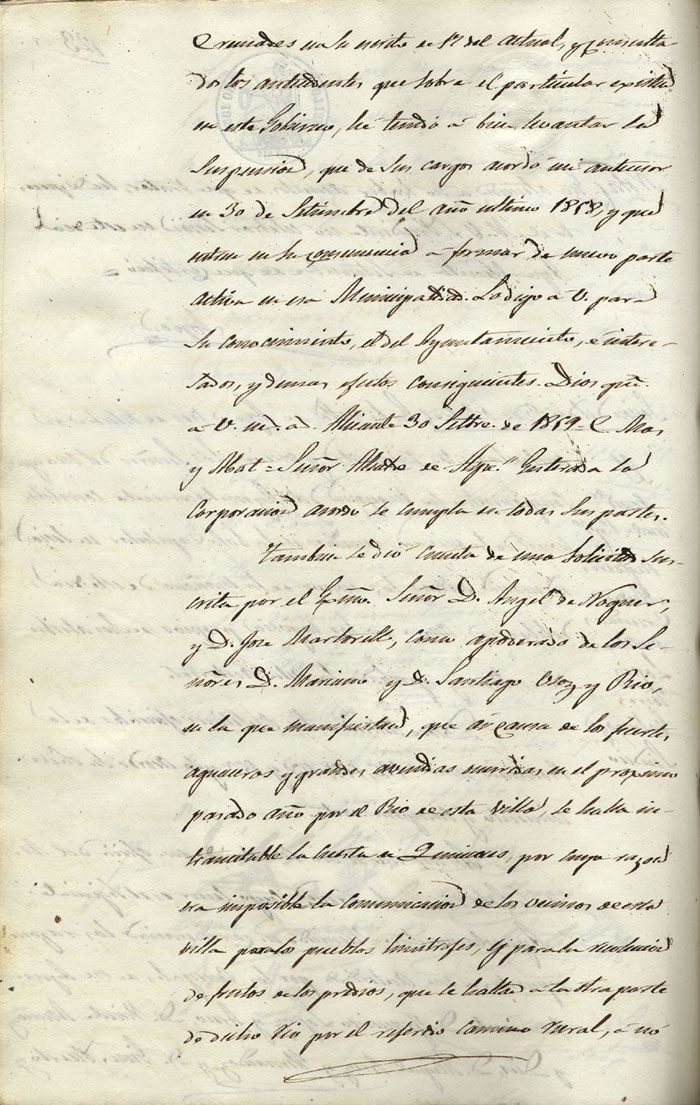 en su escrito de 1º del actual, y consulta
do los antecedentes que sobre el particular existen
en este Gobierno, he tenido á bien levantar la
suspension, que de sus cargos acordó mi antecesor
en 30 de Setiembre del año ultimo 1858, y que
entren en su consecuencia á formar de nuevo parte
activa en esa Municipalidad. Lo digo á V. para
su conocimiento, el del Ayuntamiento, é intere-
sados, y demas efectos consiguientes. Dios gue.
á V. m. a. Alicante 30 Setbre. de 1859 = C. Mas
y Abat = Señor Alcalde de Enterada la
Corporacion acordó se cumpla en todas sus partes.
Tambien se dió cuenta de una solicitud sus-
crita por el Exmo. Señor D. Angel de Noguer,
y D. Jose Martorell, como apoderado de los Se-
ñores D. Mariano y D. Santiago y Rio,
en la que manifiestan, que á causa de los fuertes
aguaceros y grandes avenidas ocurridas en el proximo
pasado año por el Rio de esta villa, se halla in-
transitable la cuesta de por cuya razon
era imposible la comunicacion de los vecinos de esta
villa para los pueblos limitrofes, y para la
de frutos de los predios, que se hallan á la otra parte
de dicho rio por el referido camino rural, á no